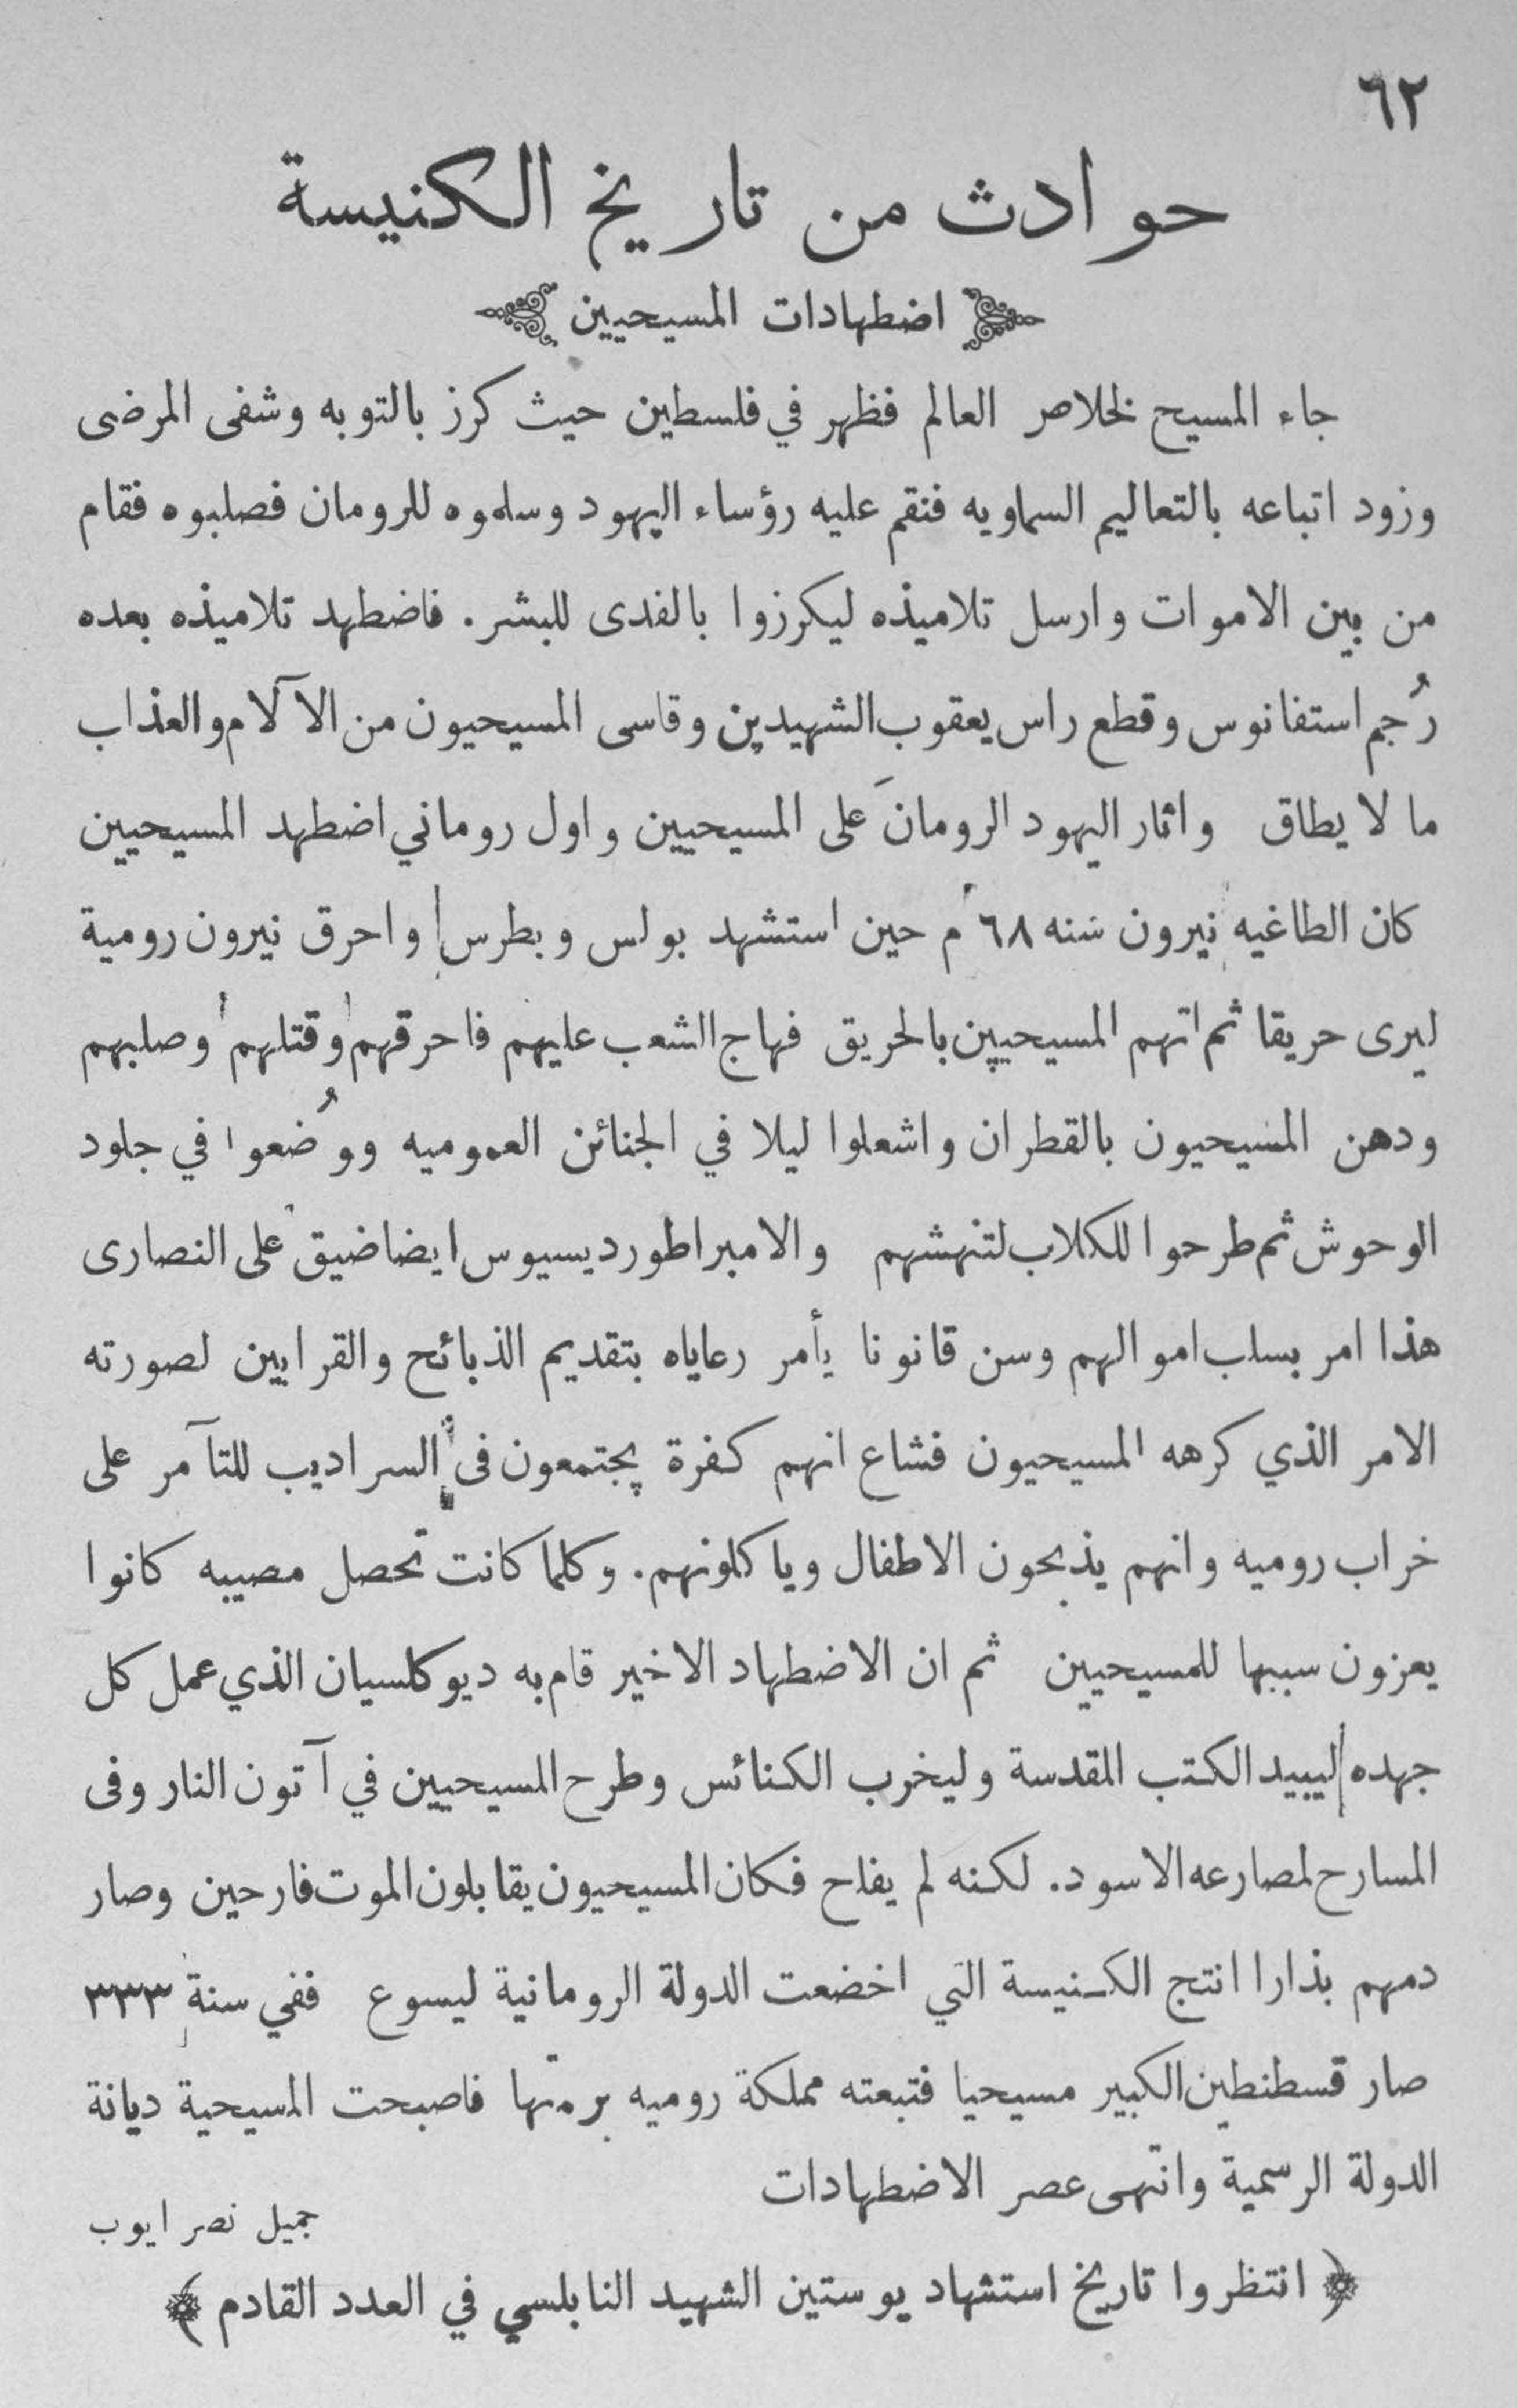 ٦٢
حوادث من تاريخ الكنيسة
اضطهادات المسيحيين
جاء المسيح لخلاص العالم فظهر في فلسطين حيث كرز بالتوبه وشفى المرضى
وزود اتباعه بالتعاليم السماويه فنقم عليه رؤساء اليهود وسلموه للرومان فصلبوه فقام
من بين الاموات وارسل تلاميذه ليكرزوا بالفدى للبشر. فاضطهد تلاميذه بعده
رُجم استفانوس وقطع راس يعقوب الشهيدين وقاسى المسيحيون من الآلام والعذاب
ما لا يطاق واثار اليهود الرومانَ على المسيحيين واول روماني اضطهد المسيحيين
كان الطاغيه نيرون سنه ٦٨ م حين استشهد بولس وبطرس واحرق نيرون رومية
ليرى حريقا ثم اتهم المسيحيين بالحريق فهاج الشعب عليهم فاحرقهم وقتلهم وصلبهم
ودهن المسيحيون بالقطران واشعلوا ليلا في الجنائن العموميه ووُضعوا في جلود
الوحوش ثم طرحوا للكلاب لتنهشهم والامبراطور ديسيوس ايضا ضيق على النصارى
هذا امر بسلب اموالهم وسن قانونا يأمر رعاياه بتقديم الذبائح والقرابين لصورته
الامر الذي كرهه المسيحيون فشاع انهم كفرة يجتمعون فى السراديب للتآمر على
خراب روميه وانهم يذبحون الاطفال وياكلونهم. وكلما كانت تحصل مصيبه كانوا
يعزون سببها للمسيحيين ثم ان الاضطهاد الاخير قام به ديوكلسيان الذي عمل كل
جهده ليبيد الكتب المقدسة وليخرب الكنائس وطرح المسيحيين في آتون النار وفى
المسارح لمصارعه الاسود. لكنه لم يفلح فكان المسيحيون يقابلون الموت فارحين وصار
دمهم بذارا انتج الكنيسة التي اخضعت الدولة الرومانية ليسوع ففي سنة ٣٣٣
صار قسطنطين الكبير مسيحيا فتبعته مملكة روميه برمتها فاصبحت المسيحية ديانة
الدولة الرسمية وانتهى عصر الاضطهادات
جميل نصر ايوب
﴿ انتظروا تاريخ استشهاد يوستين الشهيد النابلسي في العدد القادم ﴾